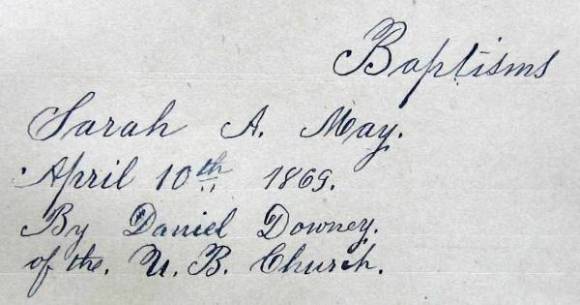 Baptisms
Sarah A. May.
April 10th 1869.
By Daniel Downey.
of the. U. B. Church.